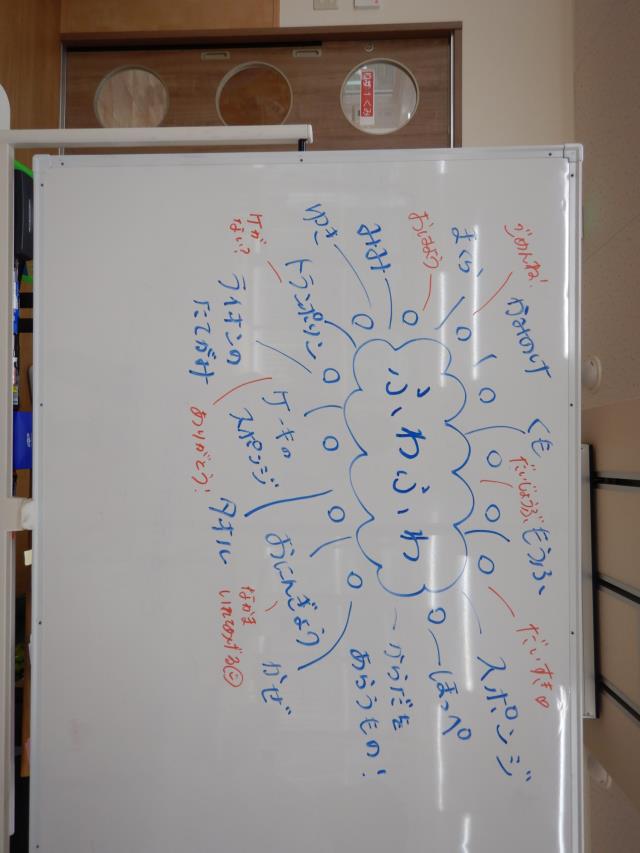 ふわふわ
ごめんね!
かみのけ
まくら
おはよう
みみ
ゆき
トランポリン
ケガ
ない?
ライオンの
たてがみ
ケーキの
スポンジ
ありがとう!
タオル
おにんぎょう
なかま
いれてあげる
かぜ
からだを
あらうもの!
ほっぺ
スポンジ
だいすき♡
もうふ
だいじょうぶ
くも